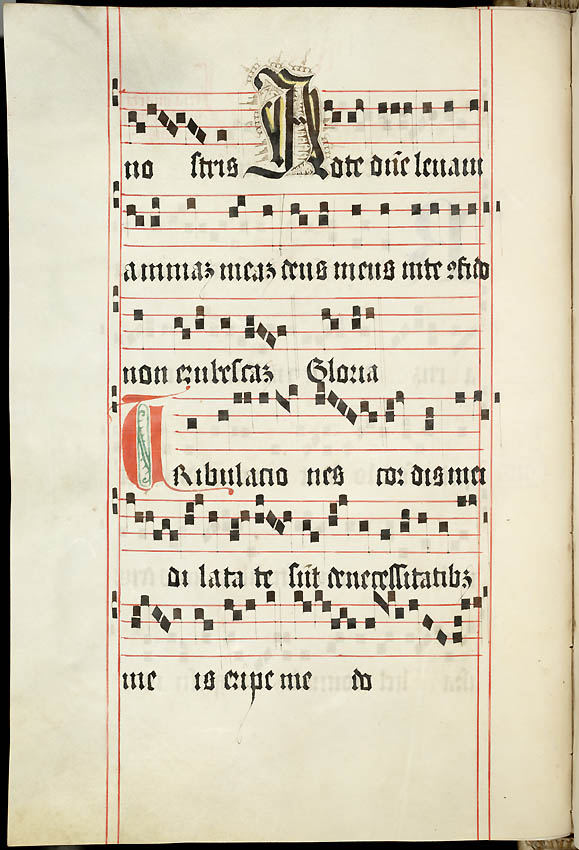 no stris Ad te dñe levavi
animaʒ meaʒ deus meus inte ꝯfido
non erubescaʒ Gloria
TRibulacio nes cor dis mei
di lata te sũt denecessitatibʒ
me is eripe me do